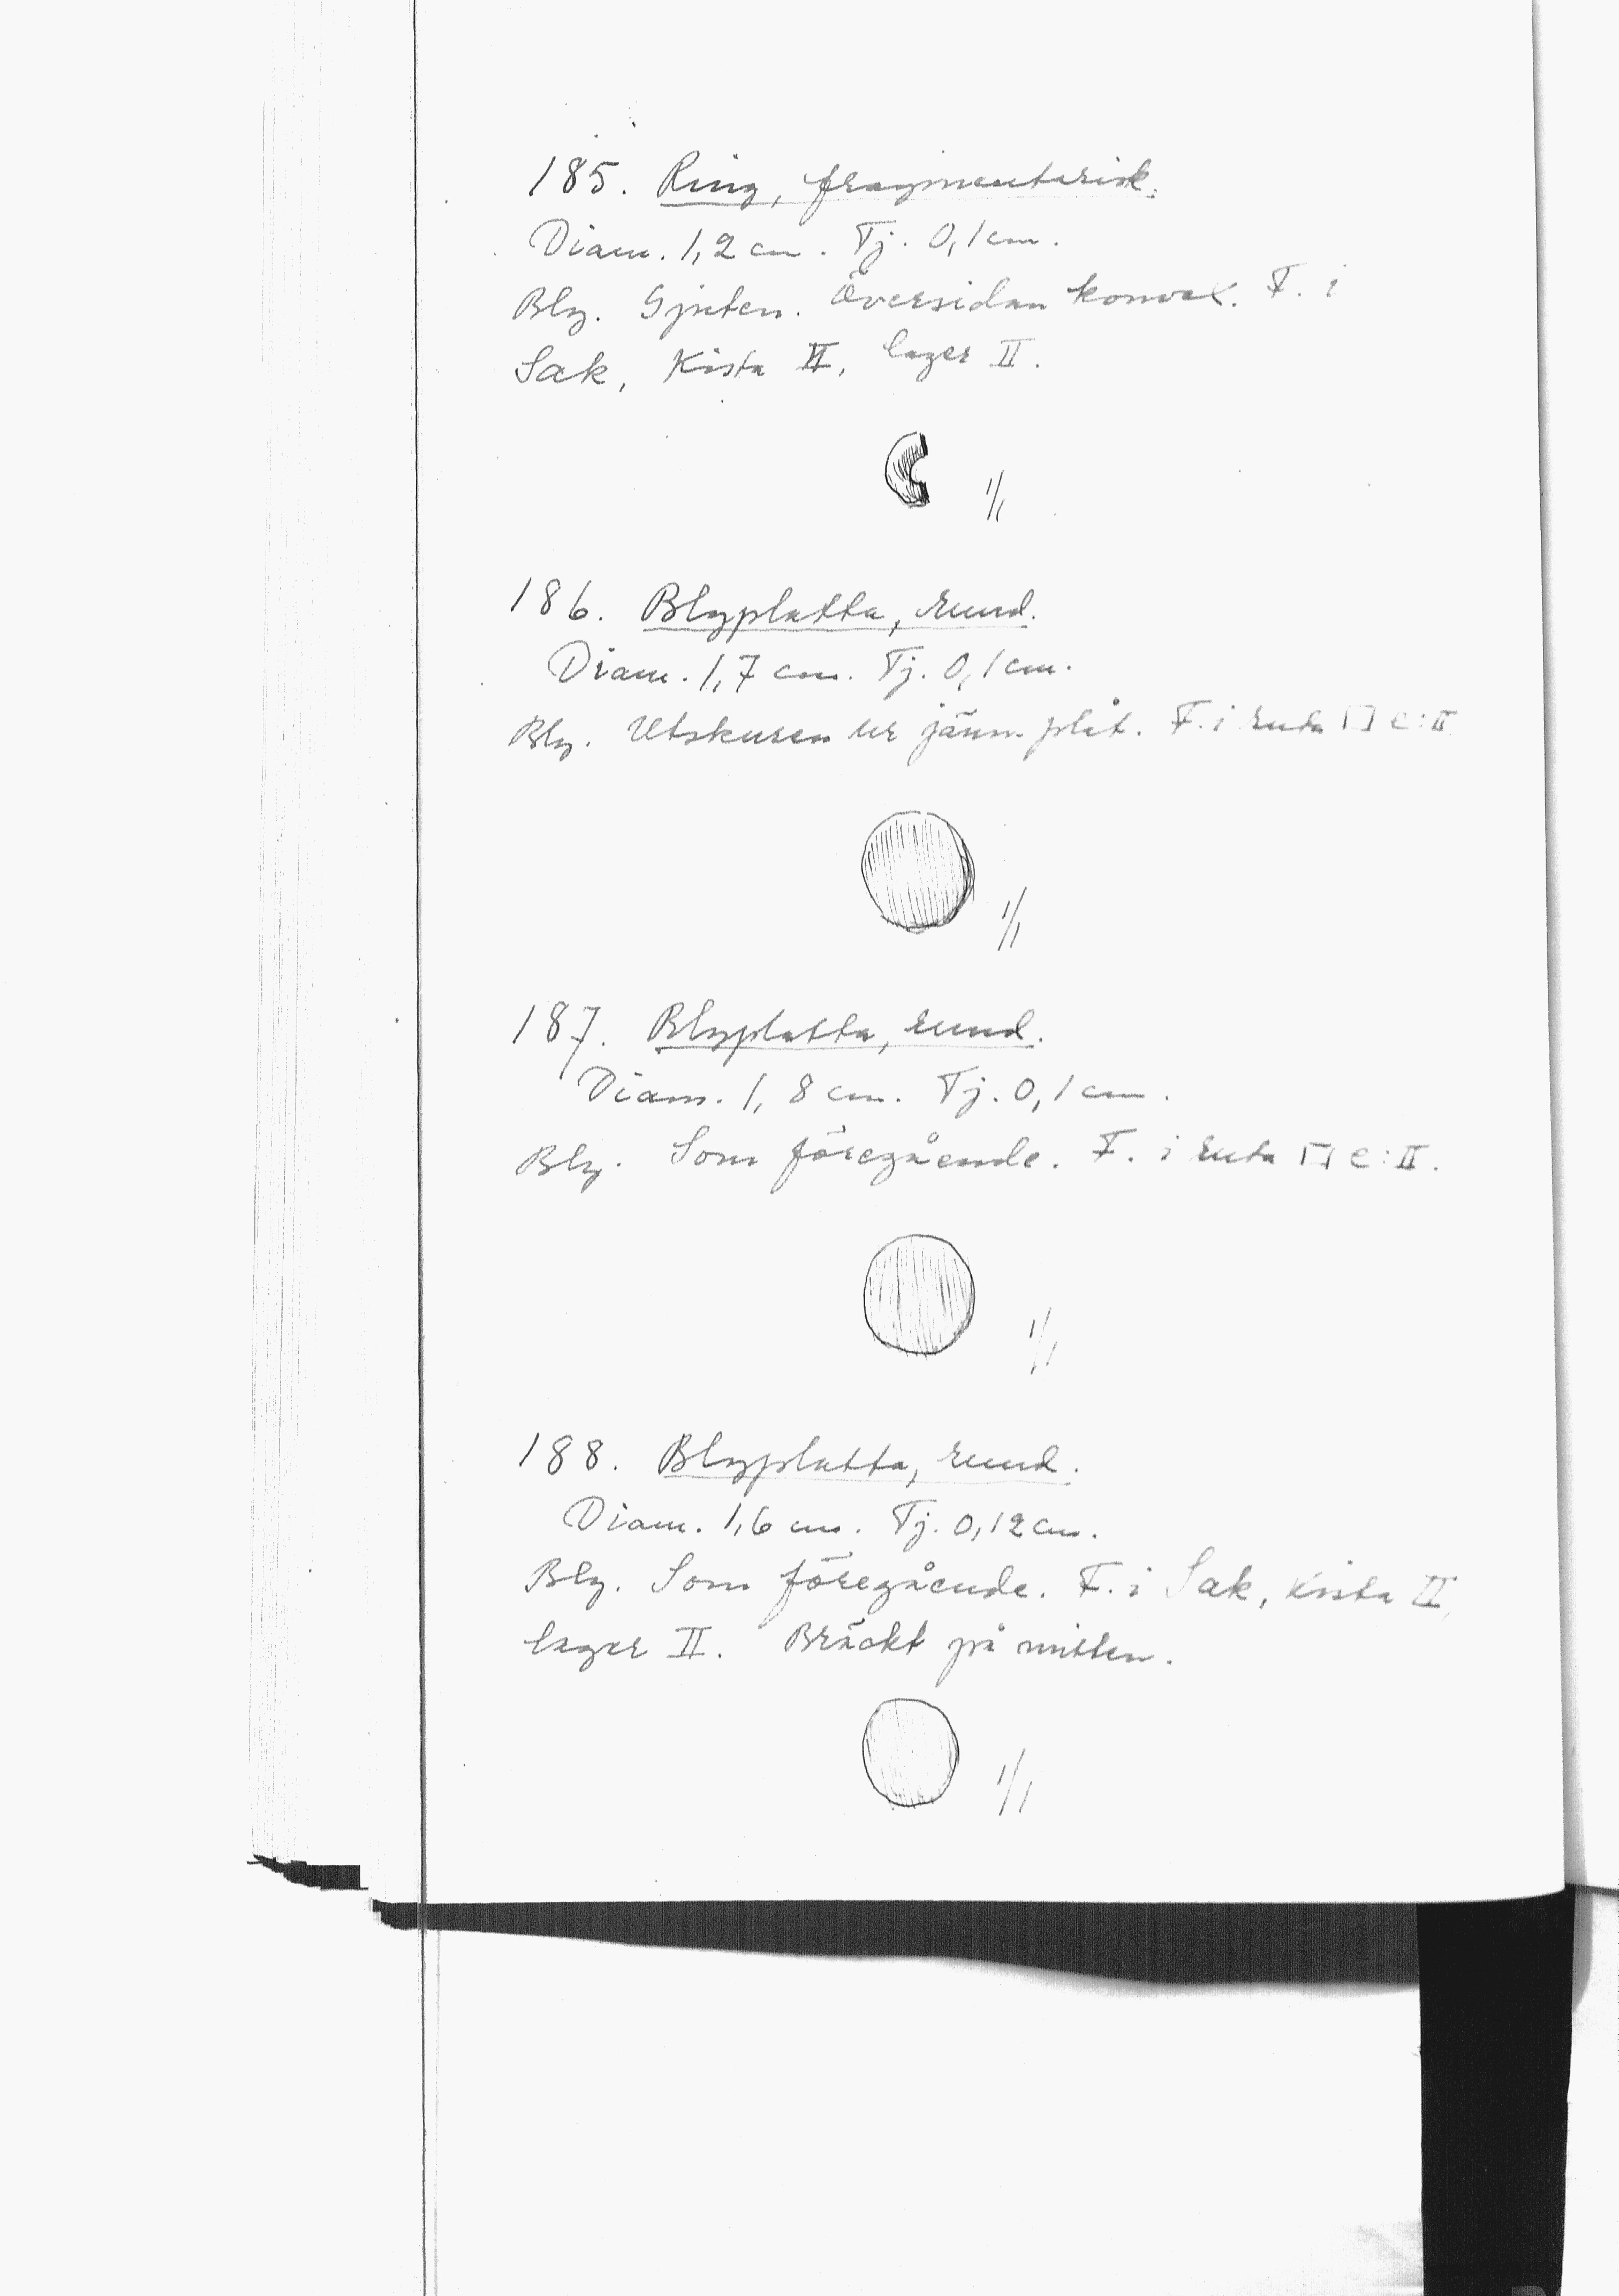 185. Ring, fragmentarisk.
Diam. 1,2 cm. Tj. 0,1 cm.
Bly. Gjuten. Översidan konvex. F. i
Sak, Kista II, lager II.
1/1
186. Blyplatta, rund.
Diam. 1,7 cm. Tj. 0,1 cm.
Bly. Utskuren ur jämn plåt. F. i ruta □ C:II
1/1
187. Blyplatta, rund.
Diam. 1,8 cm. Tj. 0,1 cm.
Bly. Som föregående. F. i ruta □ C:II.
1/1
188. Blyplatta, rund.
Diam. 1,6 cm. Tj. 0,12 cm.
Bly. Som föregående. F. i Sak, Kista II,
lager II. Bräckt på mitten.
1/1